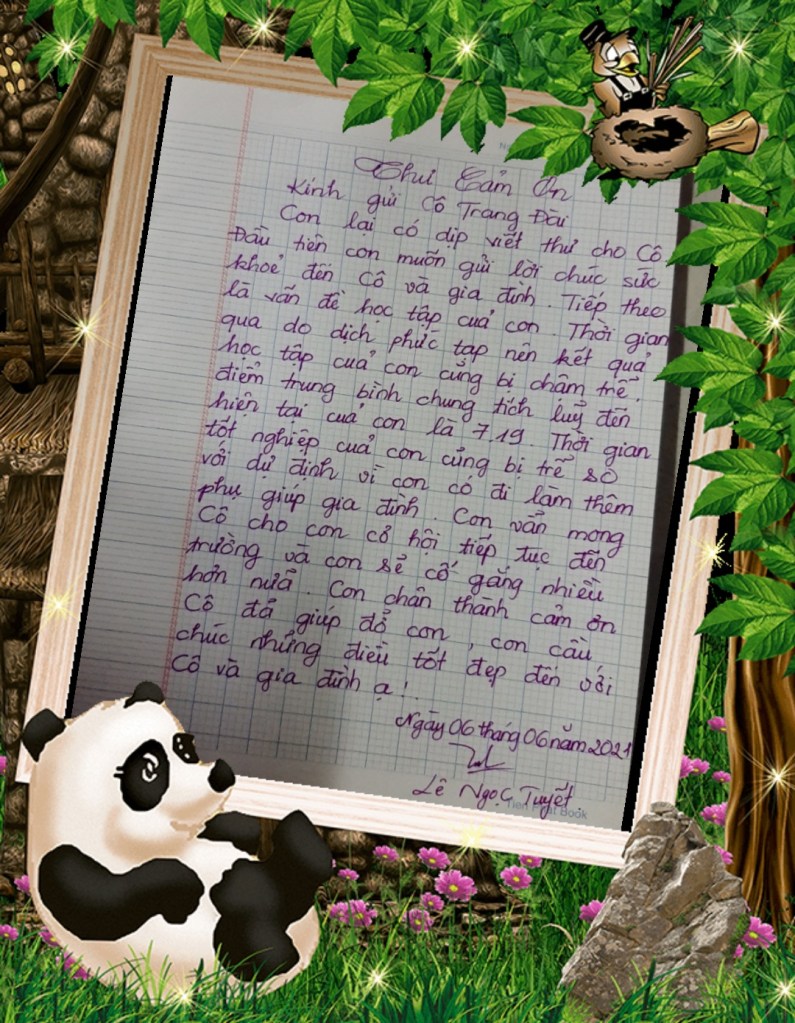 Thư Cảm Ơn
Kính gửi Cô Trang Đài
Con lại có dịp viết thư cho Cô
Đầu tiên con muốn gửi lời chúc sức
khoẻ đến Cô và gia đình. Tiếp theo
là vấn đề học tập cuả con. Thời gian
qua do dịch phức tạp nên kết quả
học tập cuả con củng bị chậm trể.
điểm trung bình chung tích luỹ đến
hiện tại cuả con là 7.19. Thời gian
tốt nghiệp cuả con củng bị trể so
với dự định vì con có đi làm thêm
phụ giúp gia đình. Con vẫn mong
Cô cho con cơ hội tiếp tục đến
trường và con sẻ cố gắng nhiều
hơn nửa. Con chân thành cảm ơn
Cô đả giúp đở con, con cầu
chúc những điều tốt đẹp đến với
Cô và gia đình ạ!.
Ngày 06 tháng 06 năm 2021
Lê Ngọc Tuyết
Book